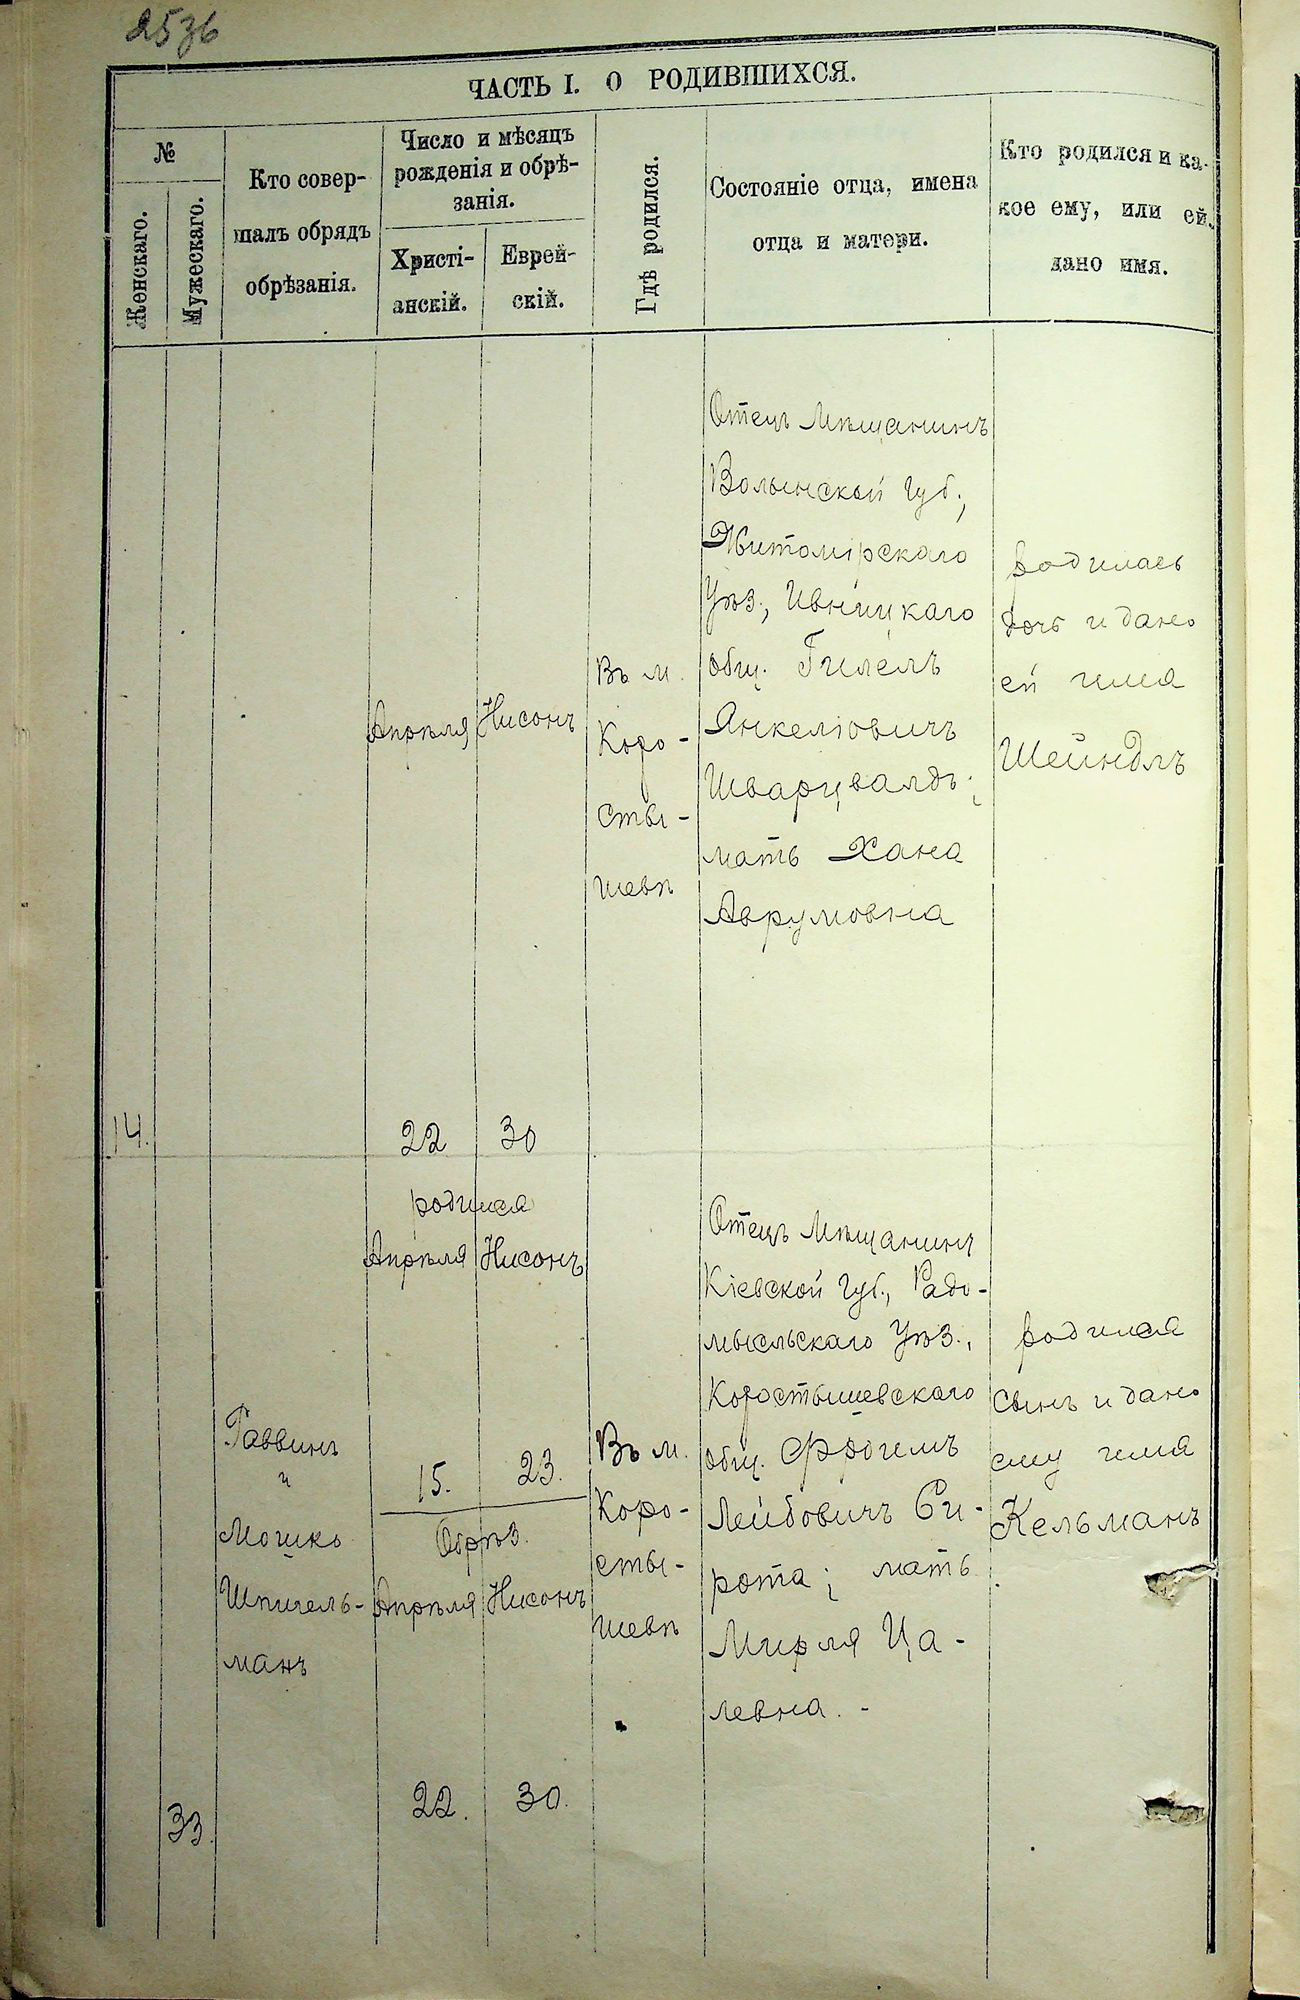 253б
ЧАСТЬ I. О РОДИВШИХСЯ.
№
Женскаго.
Мужескаго.
Кто совер-
шалъ обрядъ
обрѣзанія.
Число и мѣсяцъ
рожденія и обрѣ-
занія.
Христі-
анскій.
Еврей-
скій.
Гдѣ родился.
Состояніе отца, имена
отца и матери.
Кто родился и ка-
кое ему, или ей,
дано имя.
14.
Апрѣля
22
Нисонъ
30
Въ м.
Коро-
сты-
шевѣ
Отецъ Мѣщанинъ
Волынской Губ.,
Житомірскаго
Уѣз., Ивницкаго
общ. Гилелъ
Янкеліовичъ
Шварцвалдъ;
мать Хана
Аврумовна
родилась
дочь и дано
ей имя
Шейндлъ
33.
Раввинъ
и
Мошко
Шпигель-
манъ
родился
Апрѣля Нисонъ
15. 23.
Обрѣз.
Апрѣля Нисонъ
22. 30.
Въ м.
Коро-
сты-
шевѣ
Отецъ Мѣщанинъ
Кіевской Губ., Радо-
мысльскаго Уѣз.,
Коростышевскаго
общ. Фроимъ
Лейбовичъ Си-
рота; мать
Мирля Ца-
левна. -
родился
сынъ и дано
ему имя
Кельманъ